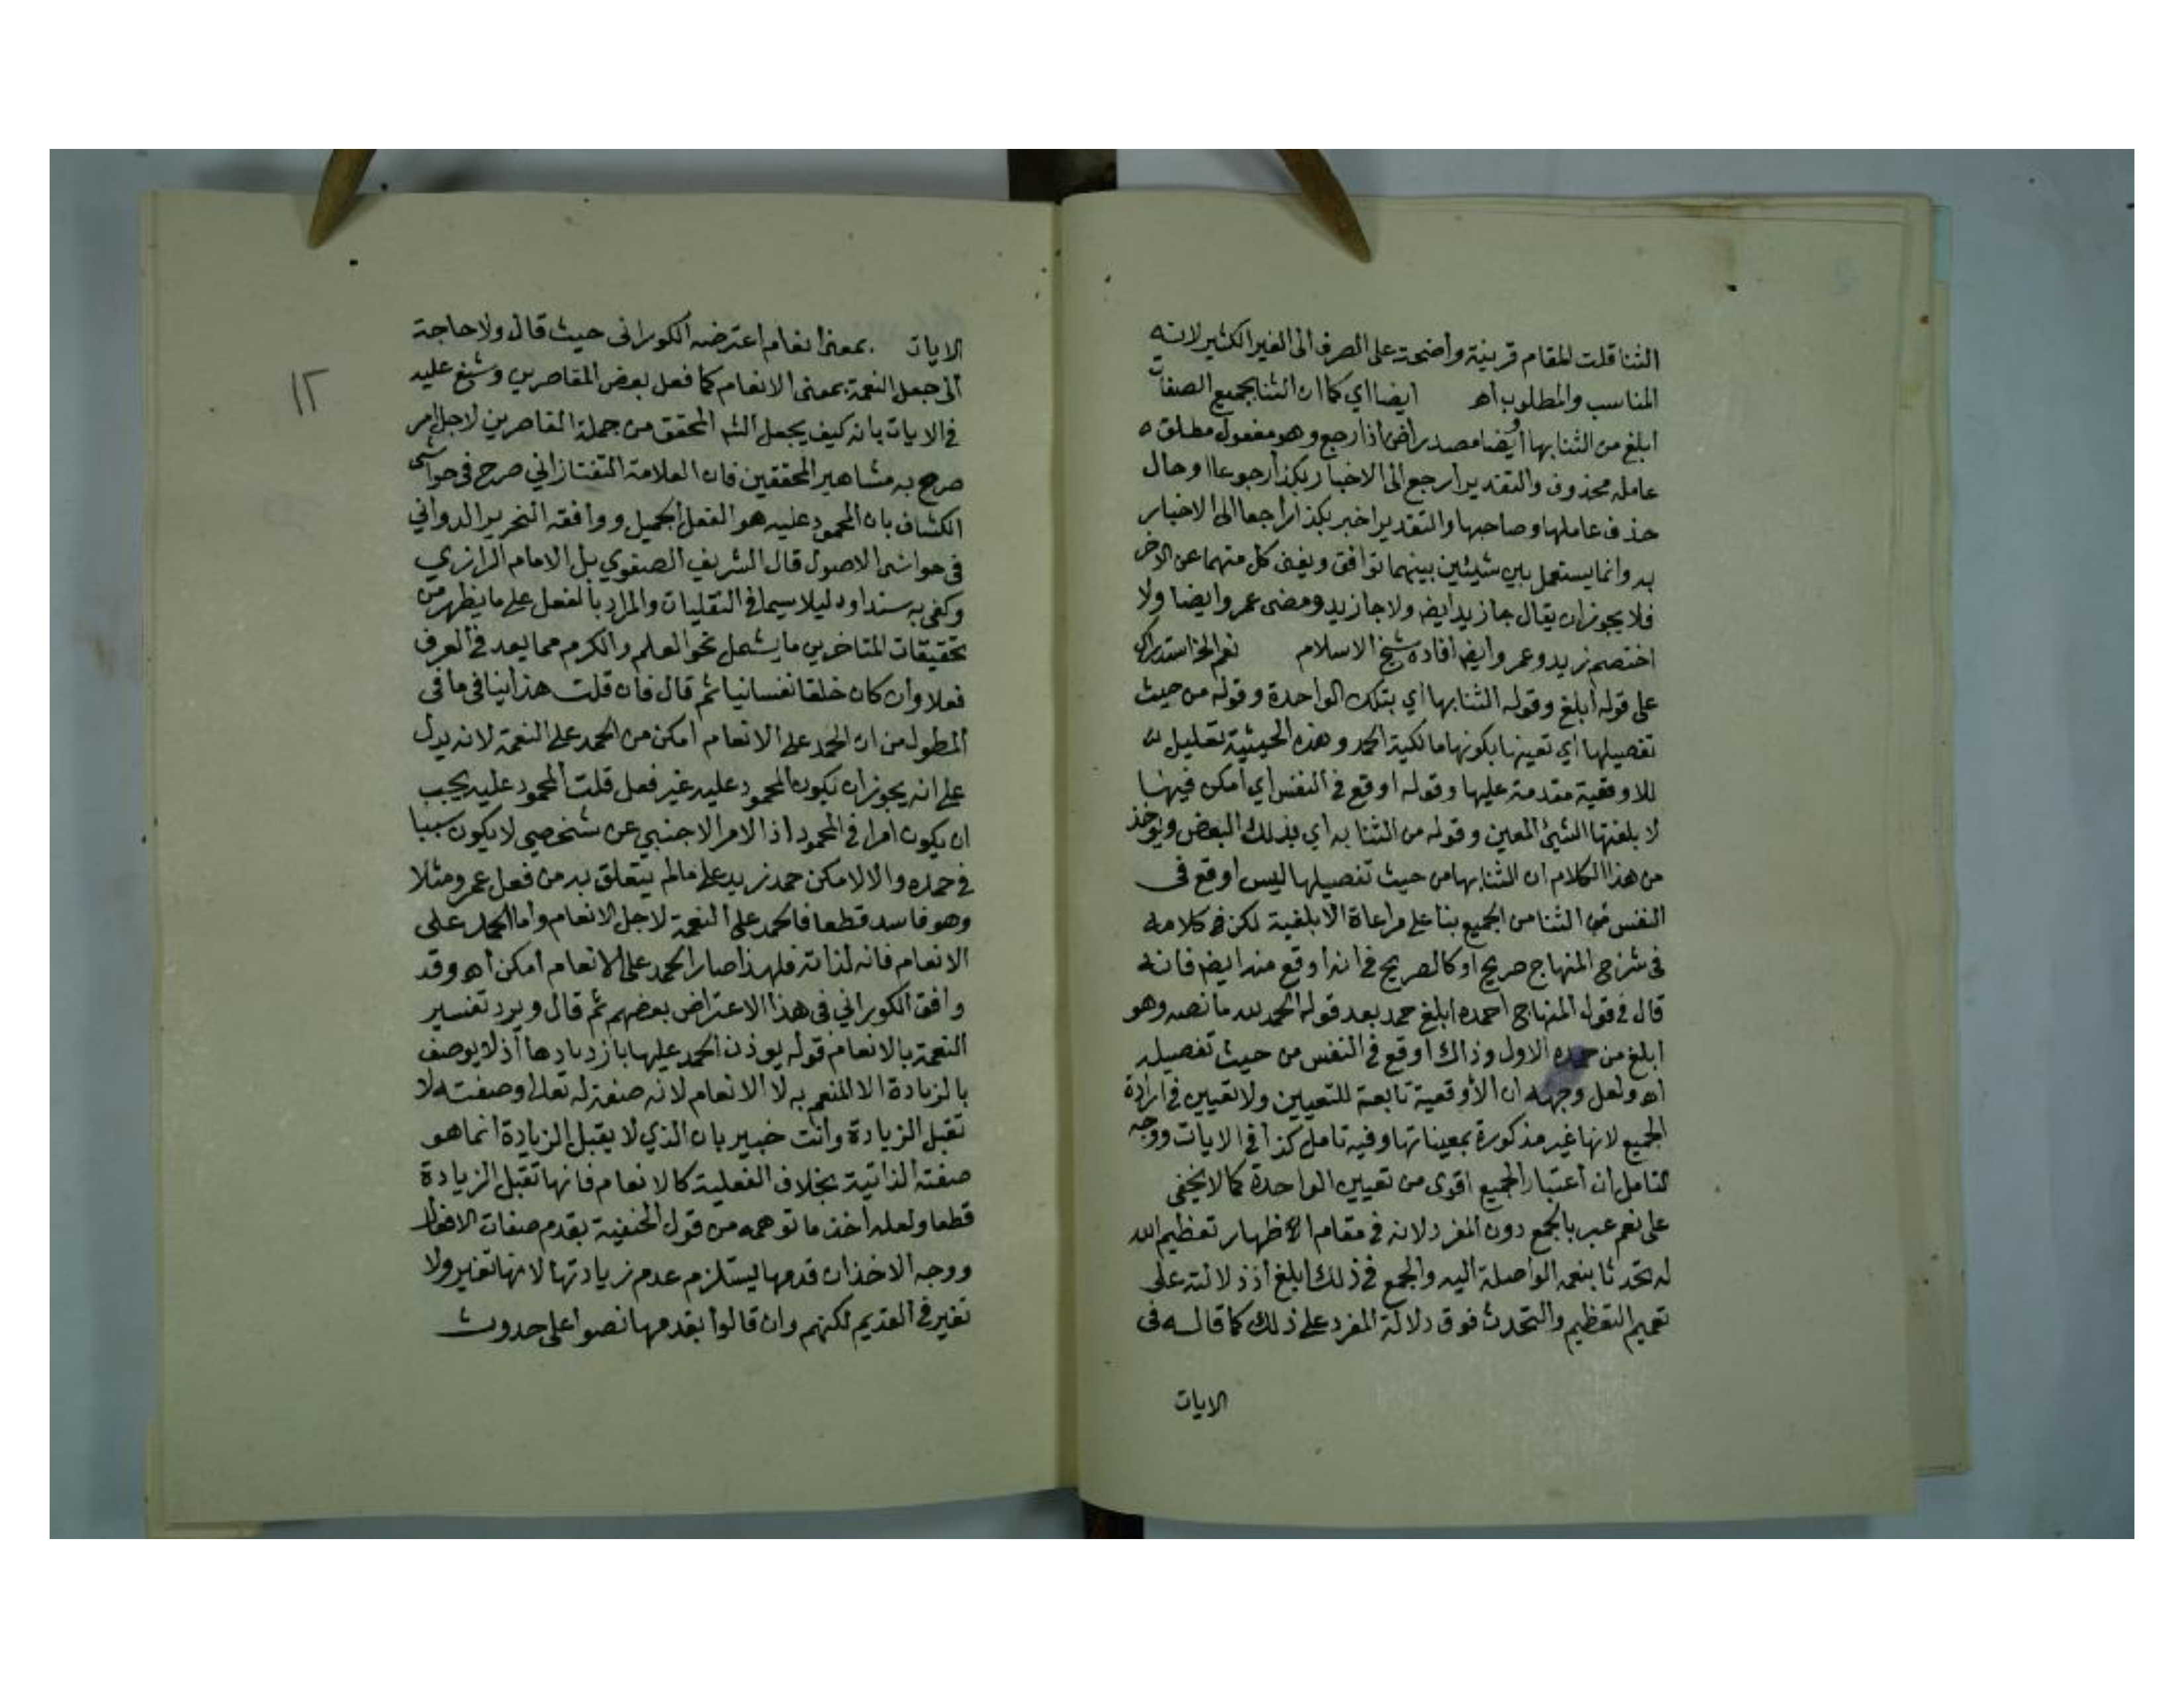 الثنا قلت المقام قرينة واضحة على الصرف الى الغير الكثير لانه
المناسب والمطلوب اه ايضا اي كما ان الثنا بجميع الصفات
ابلغ من الثنا بها وايضا مصدر راض اذا رجع وهو مفعول مطلق ه
عامله محذوف والتقدير ارجع الى الاخبار بكذا رجوعا او حال
حذف عاملها وصاحبها والتقدير اخبر بكذا راجعا الى الاخبار
به وانما يستعمل بين شيئين بينهما توافق ويغنى كل منهما عن الاخر
فلا يجوز ان يقال جا زيد ايض ولا جا زيد ومضى عمر وايضا ولا
اختصم زيد وعمر وايض افاده شيخ الاسلام نعم الخ استدراك
على قوله ابلغ وقوله الثنا بها اي بتلك الواحدة وقوله من حيث
تفصيلها اي تعينها بكونها مالكية الحمد وهذه الحيثية تعليل
للاوقعية مقدمة عليها وقوله اوقع في النفس اي امكن فيها
لا بلغتها الشيئ المعين وقوله من الثنا به اي بذلك البعض ويوخذ
من هذا الكلام ان الثنا بها من حيث تفصيلها ليس اوقع فى
النفس من الثنا من الجميع بنا على مراعاة الابلغية لكن في كلامه
فى شرح المنهاج صريح او كالصريح في انه اوقع منه ايض فانه
قال في قول المنهاج احمده ابلغ حمد بعد قوله الحمد لله ما نصه وهو
ابلغ من حمده الاول وذاك اوقع في النفس من حيث تفصيله
اه ولعل وجهه ان الأوقعية تابعة للتعيين ولا تعيين في ارادة
الجميع لانها غير مذكورة بمعيناتها وفيه تامل كذا في الايات ووجه
التامل ان اعتبار الجميع اقوى من تعيين الواحدة كما لا يخفى
على نعم عبر بالجمع دون المفرد لانه في مقام الاظهار تعظيم الله
له تحدثا بنعمه الواصلة اليه والجمع في ذلك ابلغ اذ دلالته على
تعميم التعظيم والتحدث فوق دلالة المفرد على ذلك كما قاله فى
الايات
١٢
الايات بمعنى انعام اعترضه الكورانى حيث قال ولا حاجة
الى جعل النعمة بمعنى الانعام كما فعل بعض القاصرين وشنع عليه
في الايات بانه كيف يجعل الشه المحقق من جملة القاصرين لاجل امر
صرح به مشاهير المحققين فان العلامة التفتازاني صرح فى حواشى
الكشاف بان المحمود عليه هو الفعل الجميل ووافقه النحرير الدواني
فى حواشى الاصول قال الشريف الصفوي بل الامام الرازي
وكفى به سندا ودليلا سيما في النقليات والمراد بالفعل على ما يظهر من
تحقيقات المتاخرين ما يشمل نحو العلم والكرم مما يعد في العرف
فعلا وان كان خلقا نفسانيا ثم قال فان قلت هذا ينافى ما فى
المطول من ان الحمد على الانعام امكن من الحمد على النعمة لانه يدل
على انه يجوز ان يكون المحمود عليه غير فعل قلت المحمود عليه يجب
ان يكون امرا في المحمود اذ الامر الاجنبي عن شخصي لا يكون سببا
في حمده والا لامكن حمد زيد على ما لم يتعلق به من فعل عمر ومثلا
وهو فاسد قطعا فالحمد على النعمة لاجل الانعام واما الحمد على
الانعام فانه لذاته فلهذا صار الحمد على الانعام امكن اه وقد
وافق الكوراني فى هذا الاعتراض بعضهم ثم قال ويرد تفسير
النعمة بالانعام قوله يوذن الحمد عليها بازديادها اذ لا يوصف
بالزيادة الا المنعم به لا الانعام لانه صفة له تعالى وصفته لا
تقبل الزيادة وانت خبير بان الذي لا يقبل الزيادة انما هو
صفته الذاتية بخلاف الفعلية كالانعام فانها تقبل الزيادة
قطعا ولعله اخذ ما توهمه من قول الحنفية بقدم صفات الافعال
ووجه الاخذ ان قدمها يستلزم عدم زيادتها لانها تغير ولا
تغير في القديم لكنهم وان قالوا بقدمها نصوا على حدوث